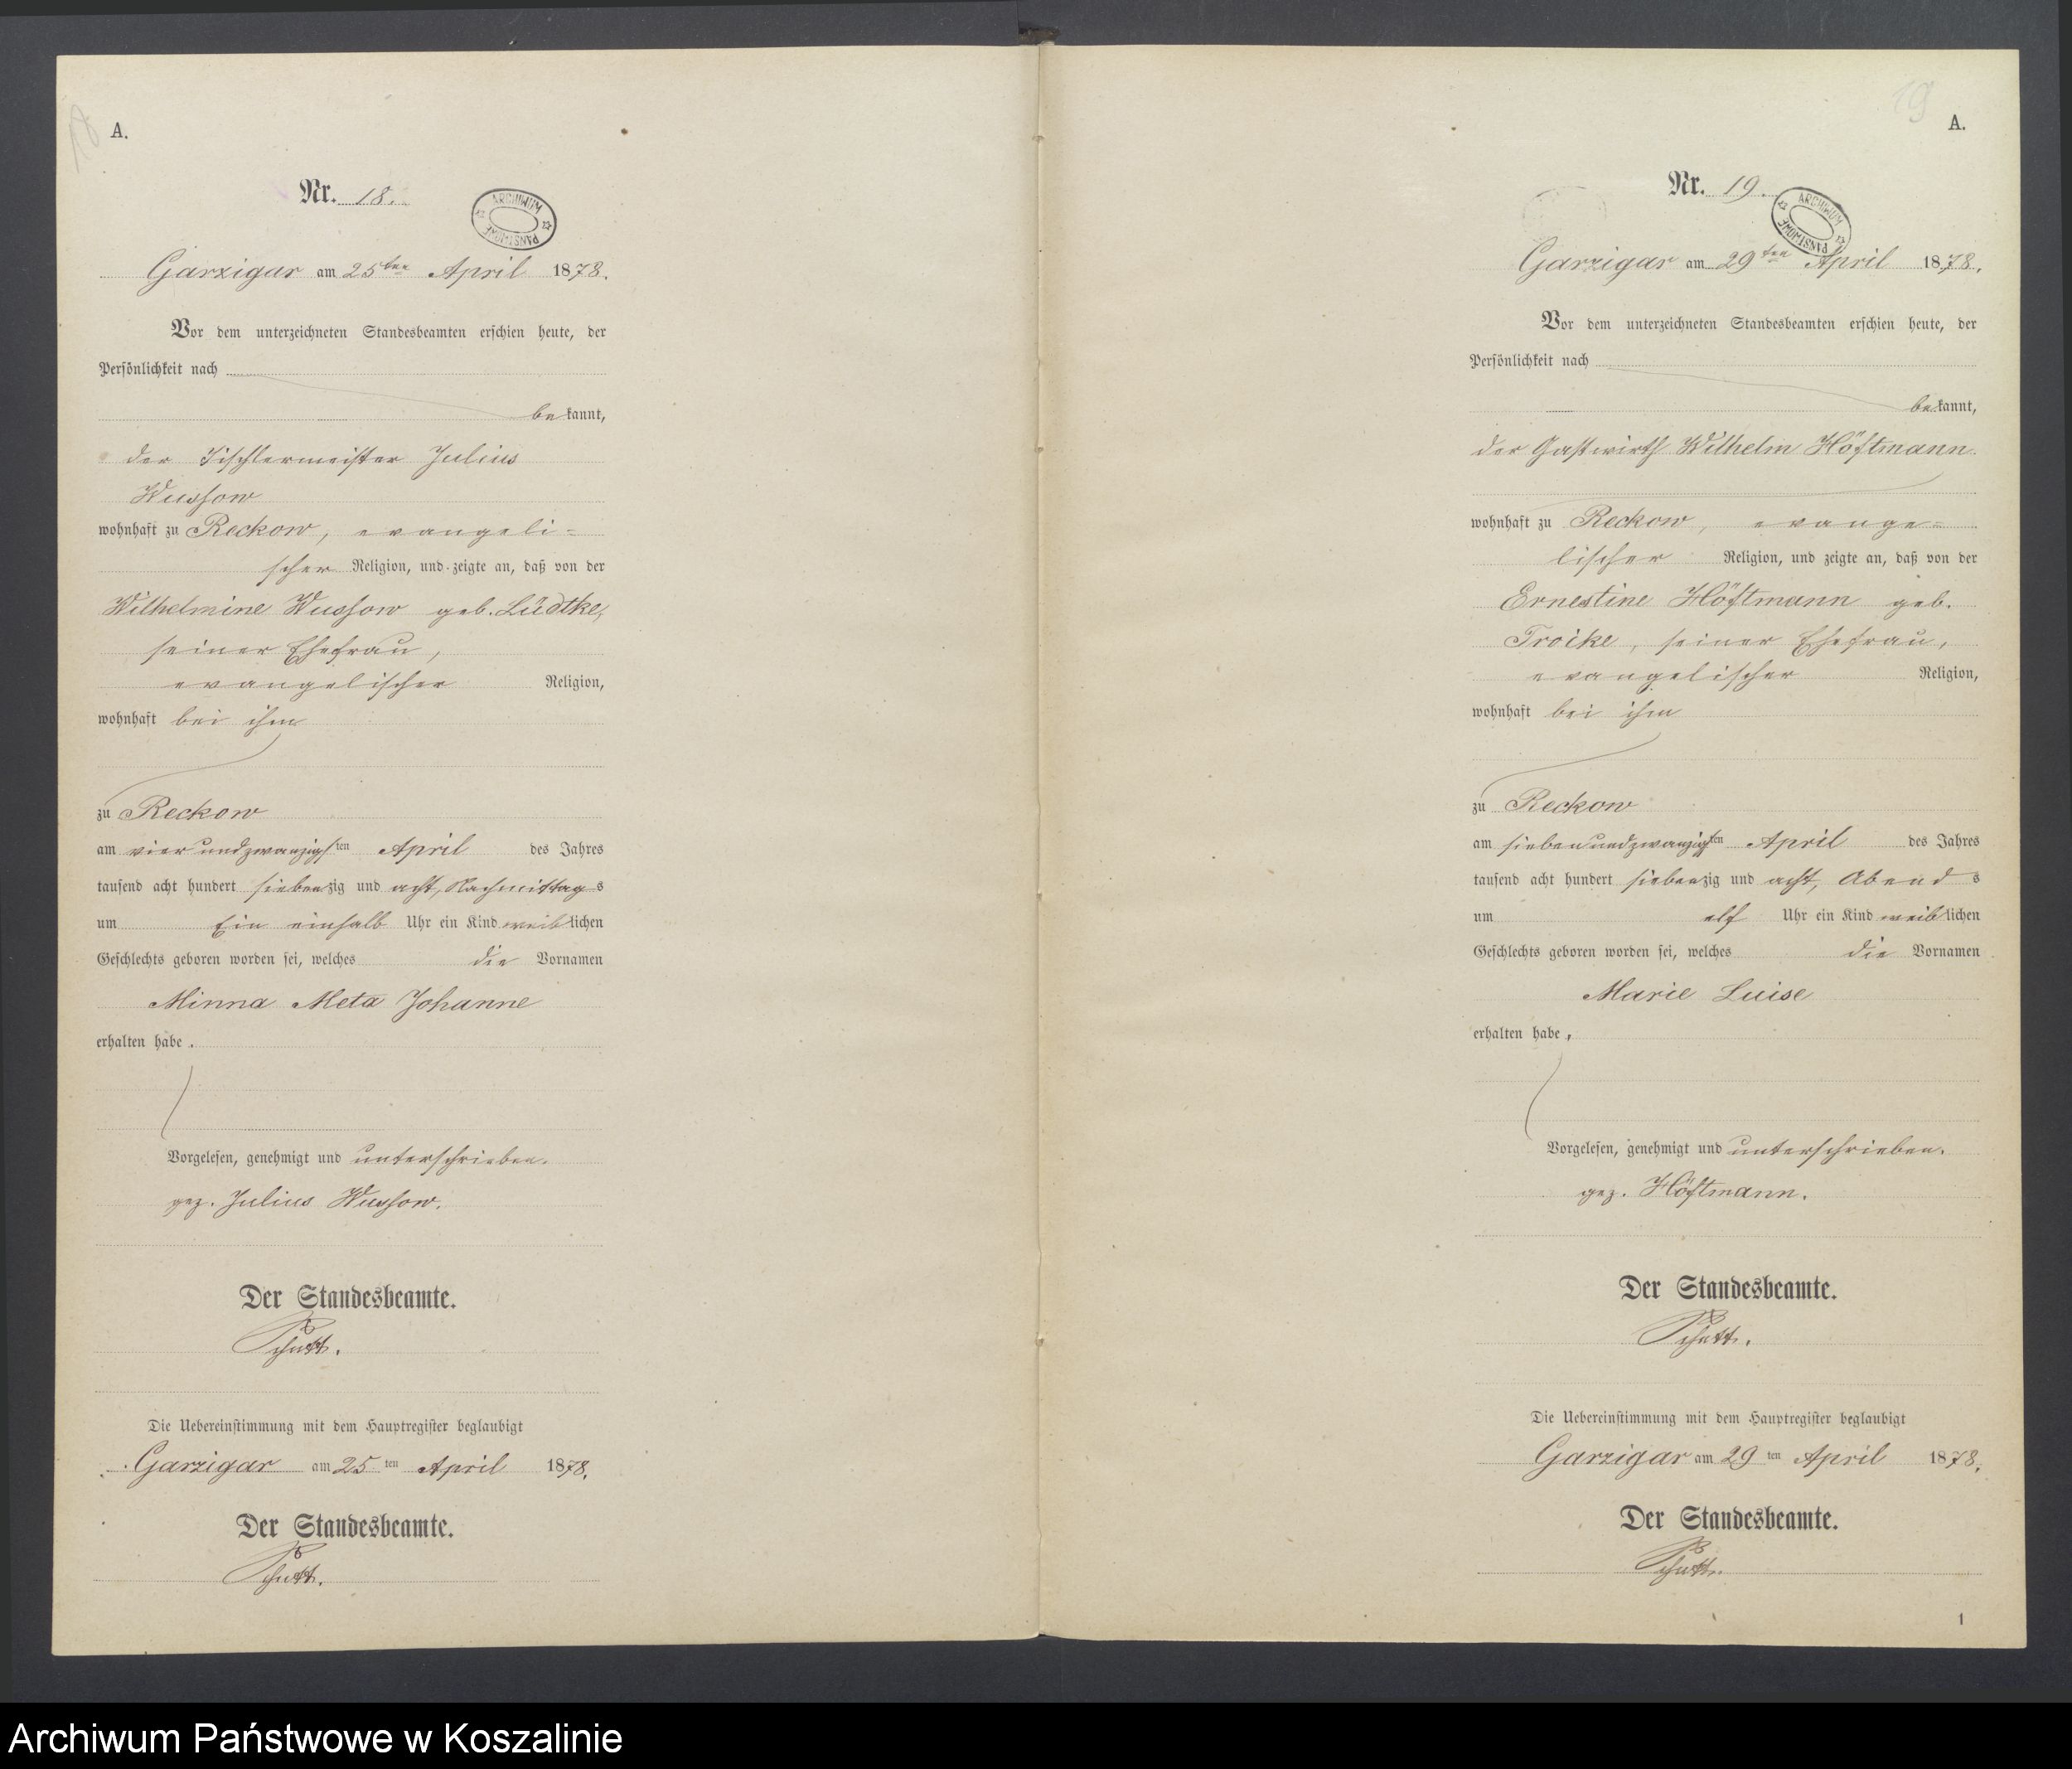 A.
Nr. 18.
ARCHIWUM PAŃSTWOWE
Garzigar am 25ten April 1878.
Vor dem unterzeichneten Standesbeamten erschien heute, der
Persönlichkeit nach
bekannt,
der Tischlermeister Julius
Wussow
wohnhaft zu Reckow, evangeli=
scher Religion, und zeigte an, daß von der
Wilhelmine Wussow geb. Lüdtke,
seiner Ehefrau,
evangelischer Religion,
wohnhaft bei ihm
zu Reckow
am vierundzwanzigsten April des Jahres
tausend acht hundert siebenzig und acht, Nachmittags
um Ein einhalb Uhr ein Kind weiblichen
Geschlechts geboren worden sei, welches die Vornamen
Minna Meta Johanne
erhalten habe.
Vorgelesen, genehmigt und unterschrieben.
gez. Julius Wussow.
Der Standesbeamte.
Schutt.
Die Uebereinstimmung mit dem Hauptregister beglaubigt
Garzigar am 25ten April 1878.
Der Standesbeamte.
Schutt.
19
A.
Nr. 19.
ARCHIWUM PAŃSTWOWE
Garzigar am 29ten April 1878.
Vor dem unterzeichneten Standesbeamten erschien heute, der
Persönlichkeit nach
bekannt,
der Gastwirth Wilhelm Höftmann
wohnhaft zu Reckow, evange=
lischer Religion, und zeigte an, daß von der
Ernestine Höftmann geb.
Troike, seiner Ehefrau,
evangelischer Religion,
wohnhaft bei ihm
zu Reckow
am siebenundzwanzigsten April des Jahres
tausend acht hundert siebenzig und acht, Abends
um elf Uhr ein Kind weiblichen
Geschlechts geboren worden sei, welches die Vornamen
Marie Luise
erhalten habe,
Vorgelesen, genehmigt und unterschrieben.
gez. Höftmann.
Der Standesbeamte.
Schutt.
Die Uebereinstimmung mit dem Hauptregister beglaubigt
Garzigar am 29ten April 1878.
Der Standesbeamte.
Schutt.
1
Archiwum Państwowe w Koszalinie